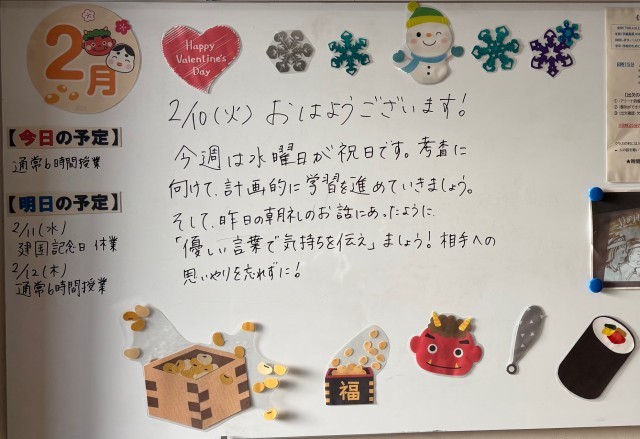 2月
Happy
Valentine's
Day
2/10(火) おはようございます!
今週は水曜日が祝日です。考査に
向けて、計画的に学習を進めていきましょう。
そして、昨日の朝礼のお話にあったように、
「優しい言葉で気持ちを伝え」ましょう!相手への
思いやりを忘れずに!
【今日の予定】
通常6時間授業
【明日の予定】
2/11(水)
建国記念日 休業
2/12(木)
通常6時間授業
福